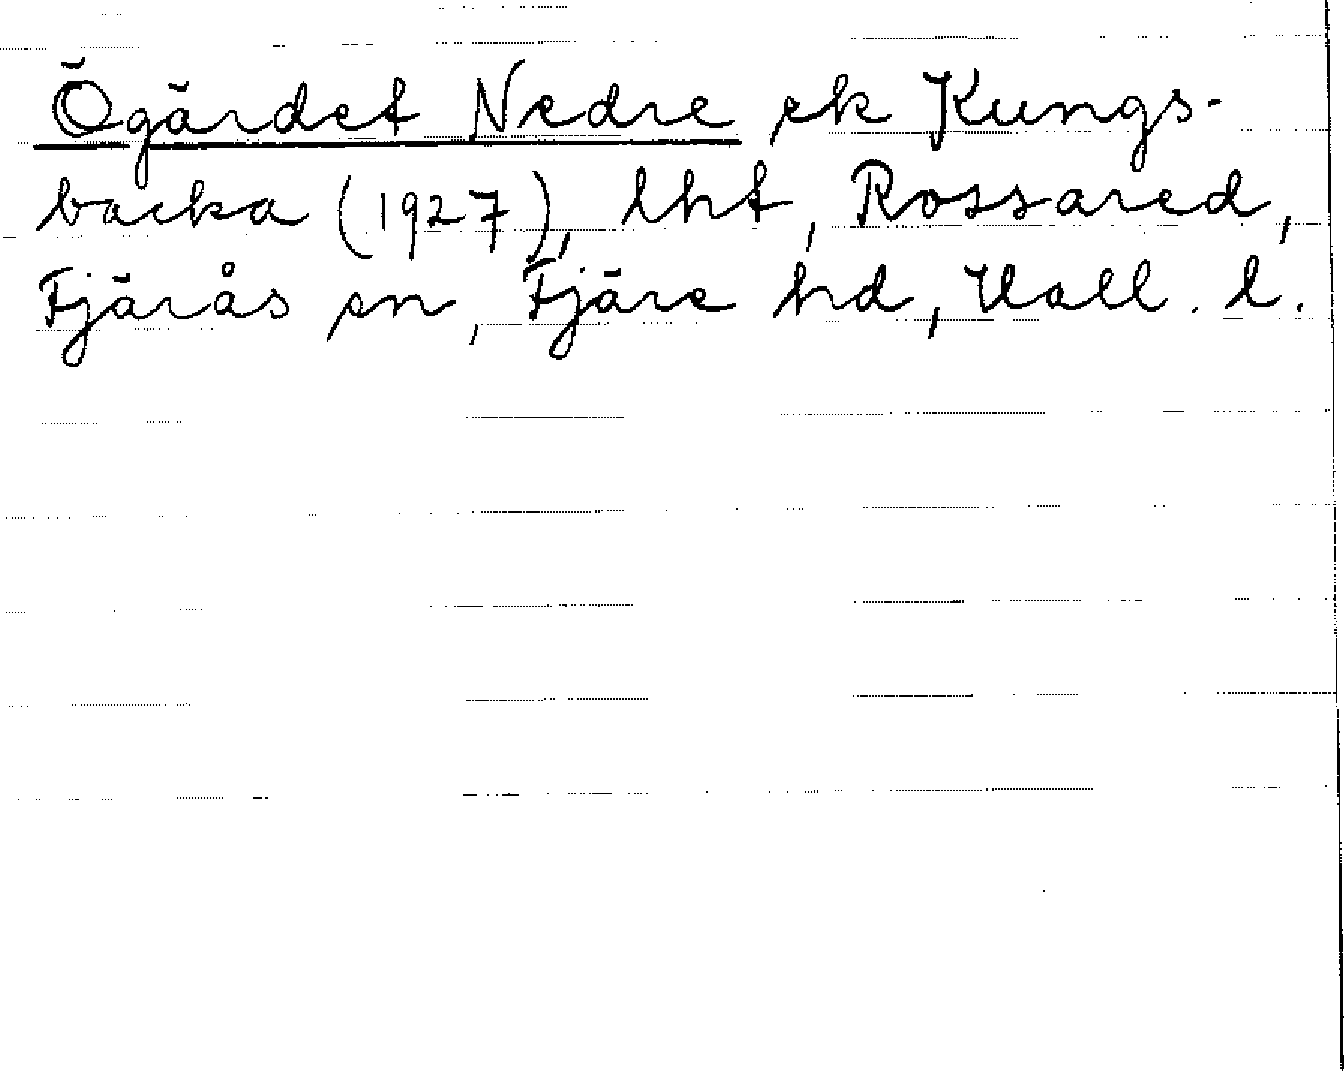 Ögärdet Nedre ek Kungs-
backa (1927), lht, Rossared,
Fjärås sn, Fjäre hd, Hall. l.